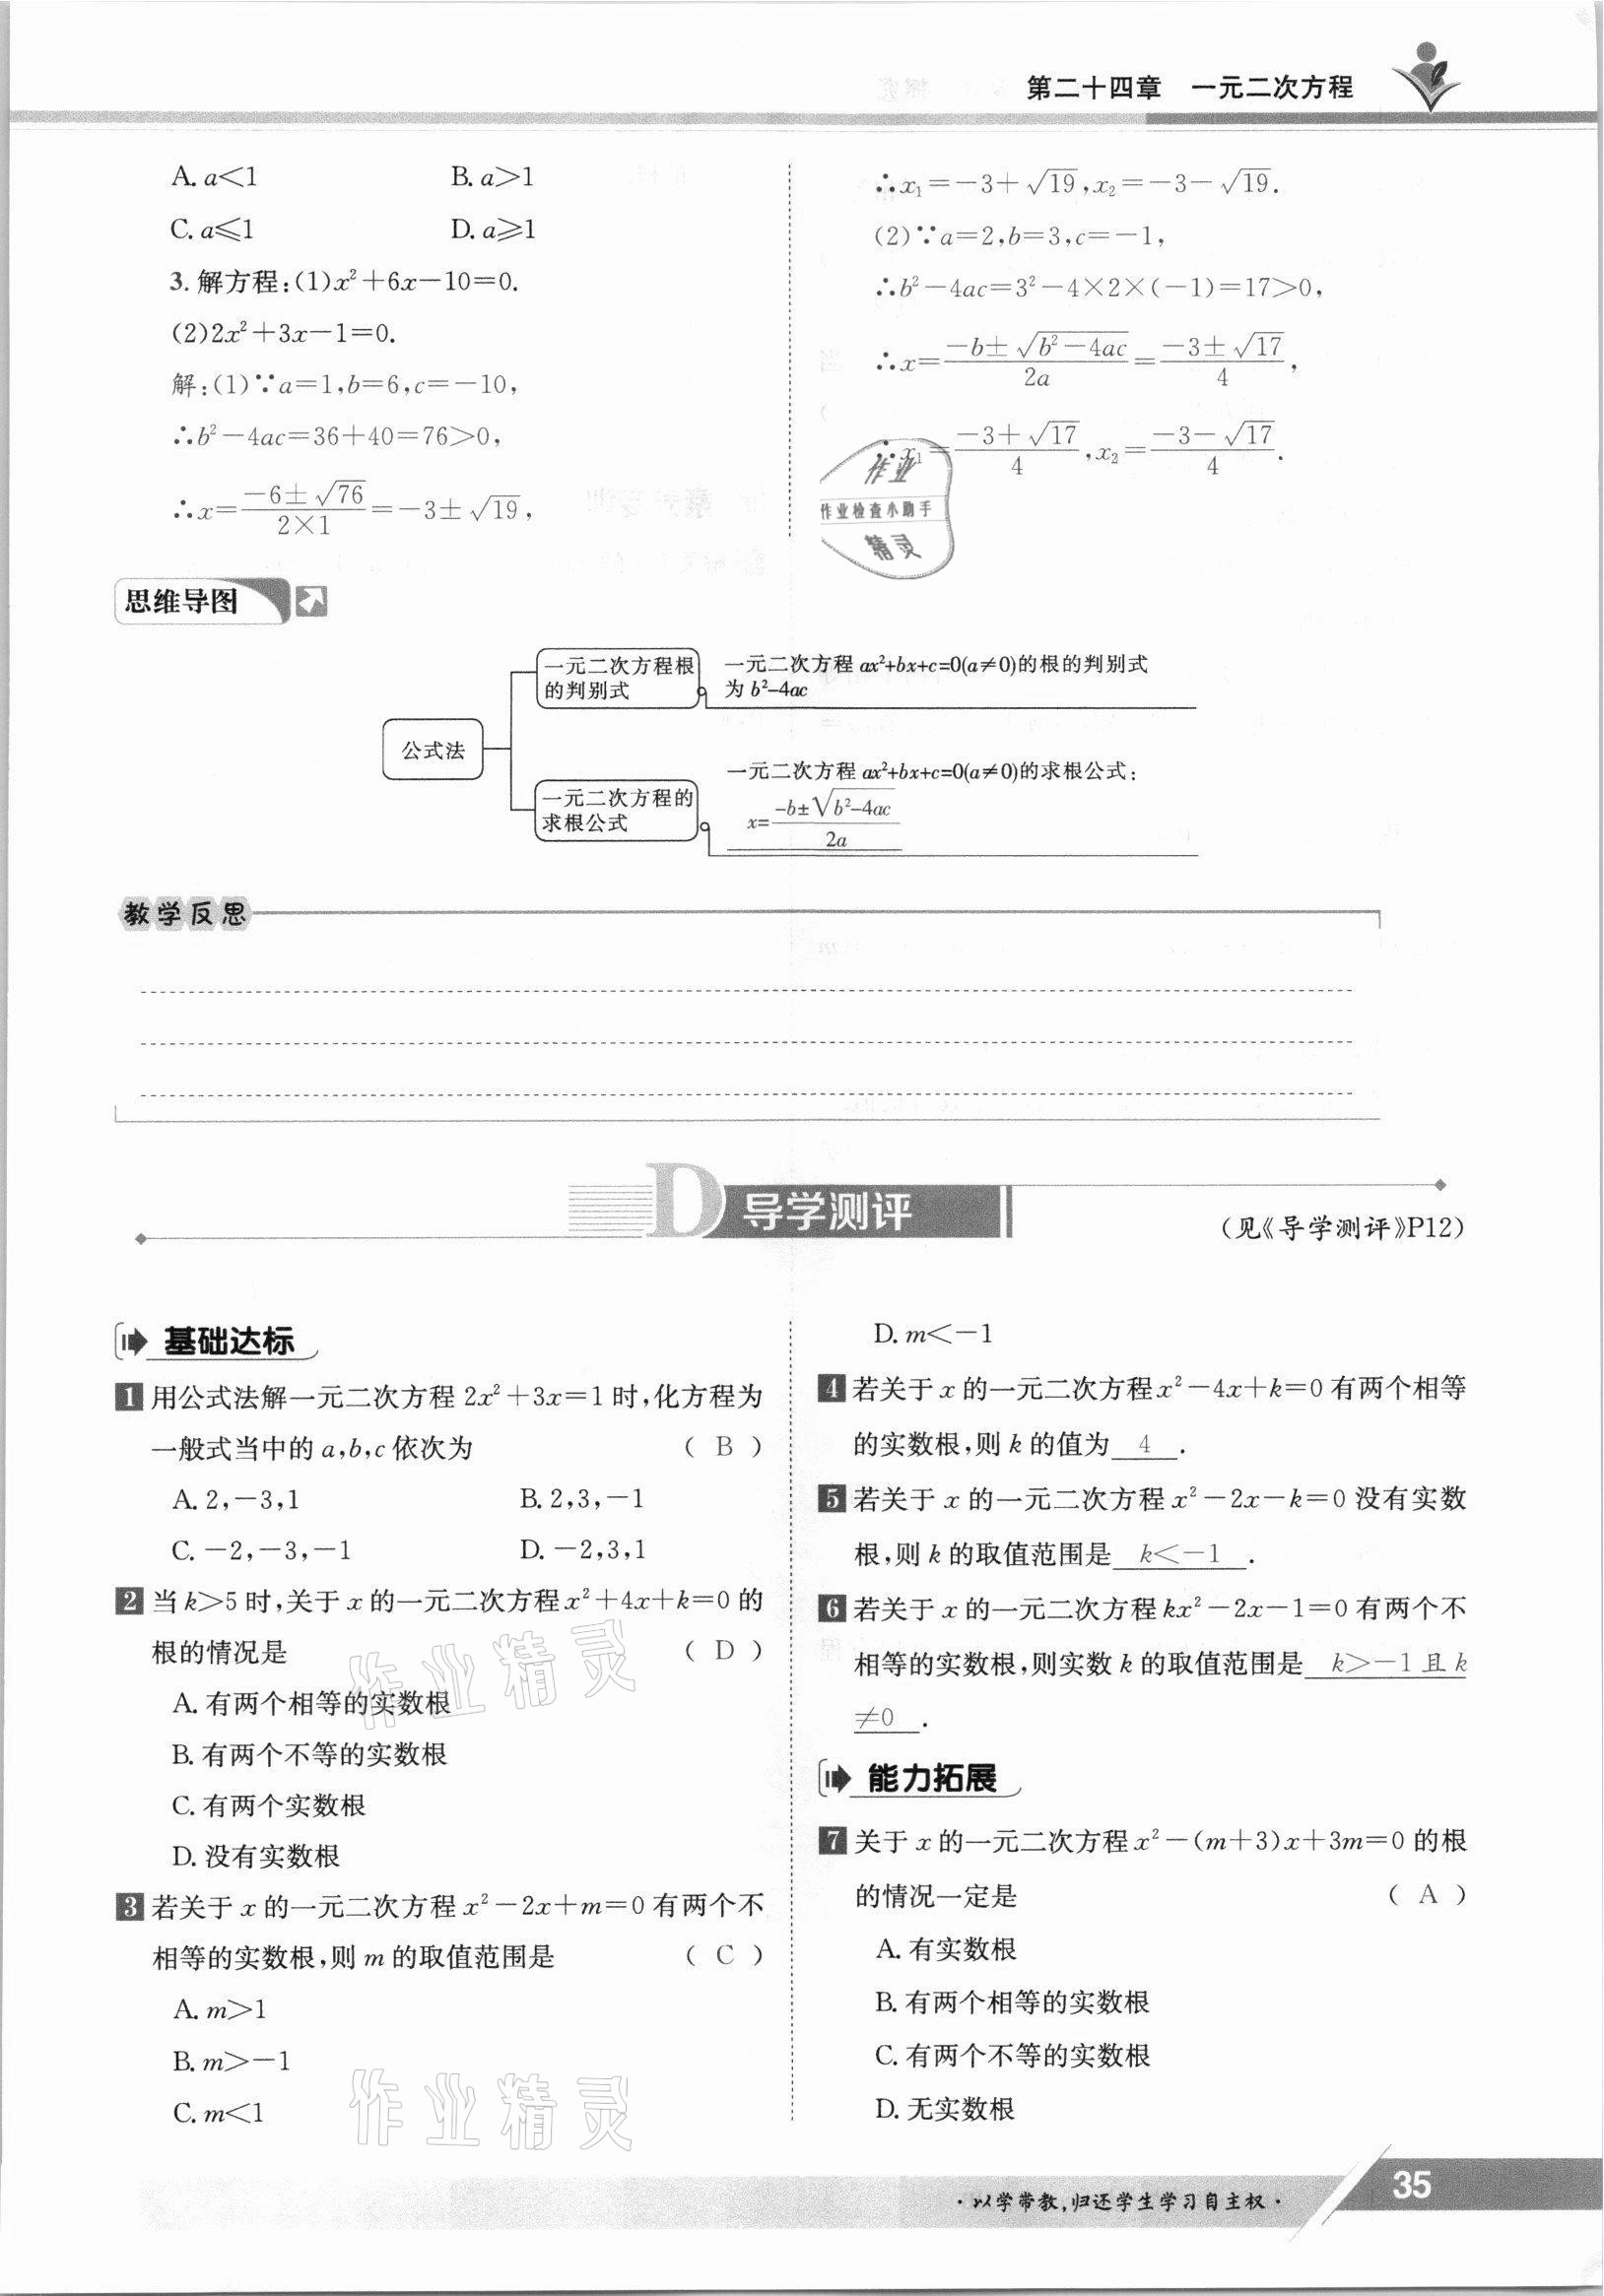 第二十四章 一元二次方程
A. a<1 B. a>1
C. a⩽1 D. a⩾1
3. 解方程:(1)x²+6x-10=0.
(2)2x²+3x-1=0.
解:(1)∵a=1,b=6,c=-10,
∴b²-4ac=36+40=76>0,
∴x=(-6±√76)/(2×1)=-3±√19,
∴x₁=-3+√19,x₂=-3-√19.
(2)∵a=2,b=3,c=-1,
∴b²-4ac=3²-4×2×(-1)=17>0,
∴x=(-b±√(b²-4ac))/(2a)=(-3±√17)/4,
∴x₁=(-3+√17)/4,x₂=(-3-√17)/4.
作业
作业检查小助手
精灵
思维导图
公式法
一元二次方程根
的判别式
一元二次方程 ax²+bx+c=0(a≠0)的根的判别式
为 b²-4ac
一元二次方程的
求根公式
一元二次方程 ax²+bx+c=0(a≠0)的求根公式:
x=(-b±√(b²-4ac))/(2a)
教学反思
D 导学测评
(见《导学测评》P12)
基础达标
1 用公式法解一元二次方程 2x²+3x=1 时,化方程为
一般式当中的 a,b,c 依次为 ( B )
A. 2,-3,1 B. 2,3,-1
C. -2,-3,-1 D. -2,3,1
2 当 k>5 时,关于 x 的一元二次方程 x²+4x+k=0 的
根的情况是 ( D )
A. 有两个相等的实数根
B. 有两个不等的实数根
C. 有两个实数根
D. 没有实数根
3 若关于 x 的一元二次方程 x²-2x+m=0 有两个不
相等的实数根,则 m 的取值范围是 ( C )
A. m>1
B. m>-1
C. m<1
D. m<-1
4 若关于 x 的一元二次方程 x²-4x+k=0 有两个相等
的实数根,则 k 的值为 4 .
5 若关于 x 的一元二次方程 x²-2x-k=0 没有实数
根,则 k 的取值范围是 k<-1 .
6 若关于 x 的一元二次方程 kx²-2x-1=0 有两个不
相等的实数根,则实数 k 的取值范围是 k>-1 且 k
≠0 .
能力拓展
7 关于 x 的一元二次方程 x²-(m+3)x+3m=0 的根
的情况一定是 ( A )
A. 有实数根
B. 有两个相等的实数根
C. 有两个不等的实数根
D. 无实数根
作业精灵
作业精灵
·以学带教,归还学生学习自主权·
35